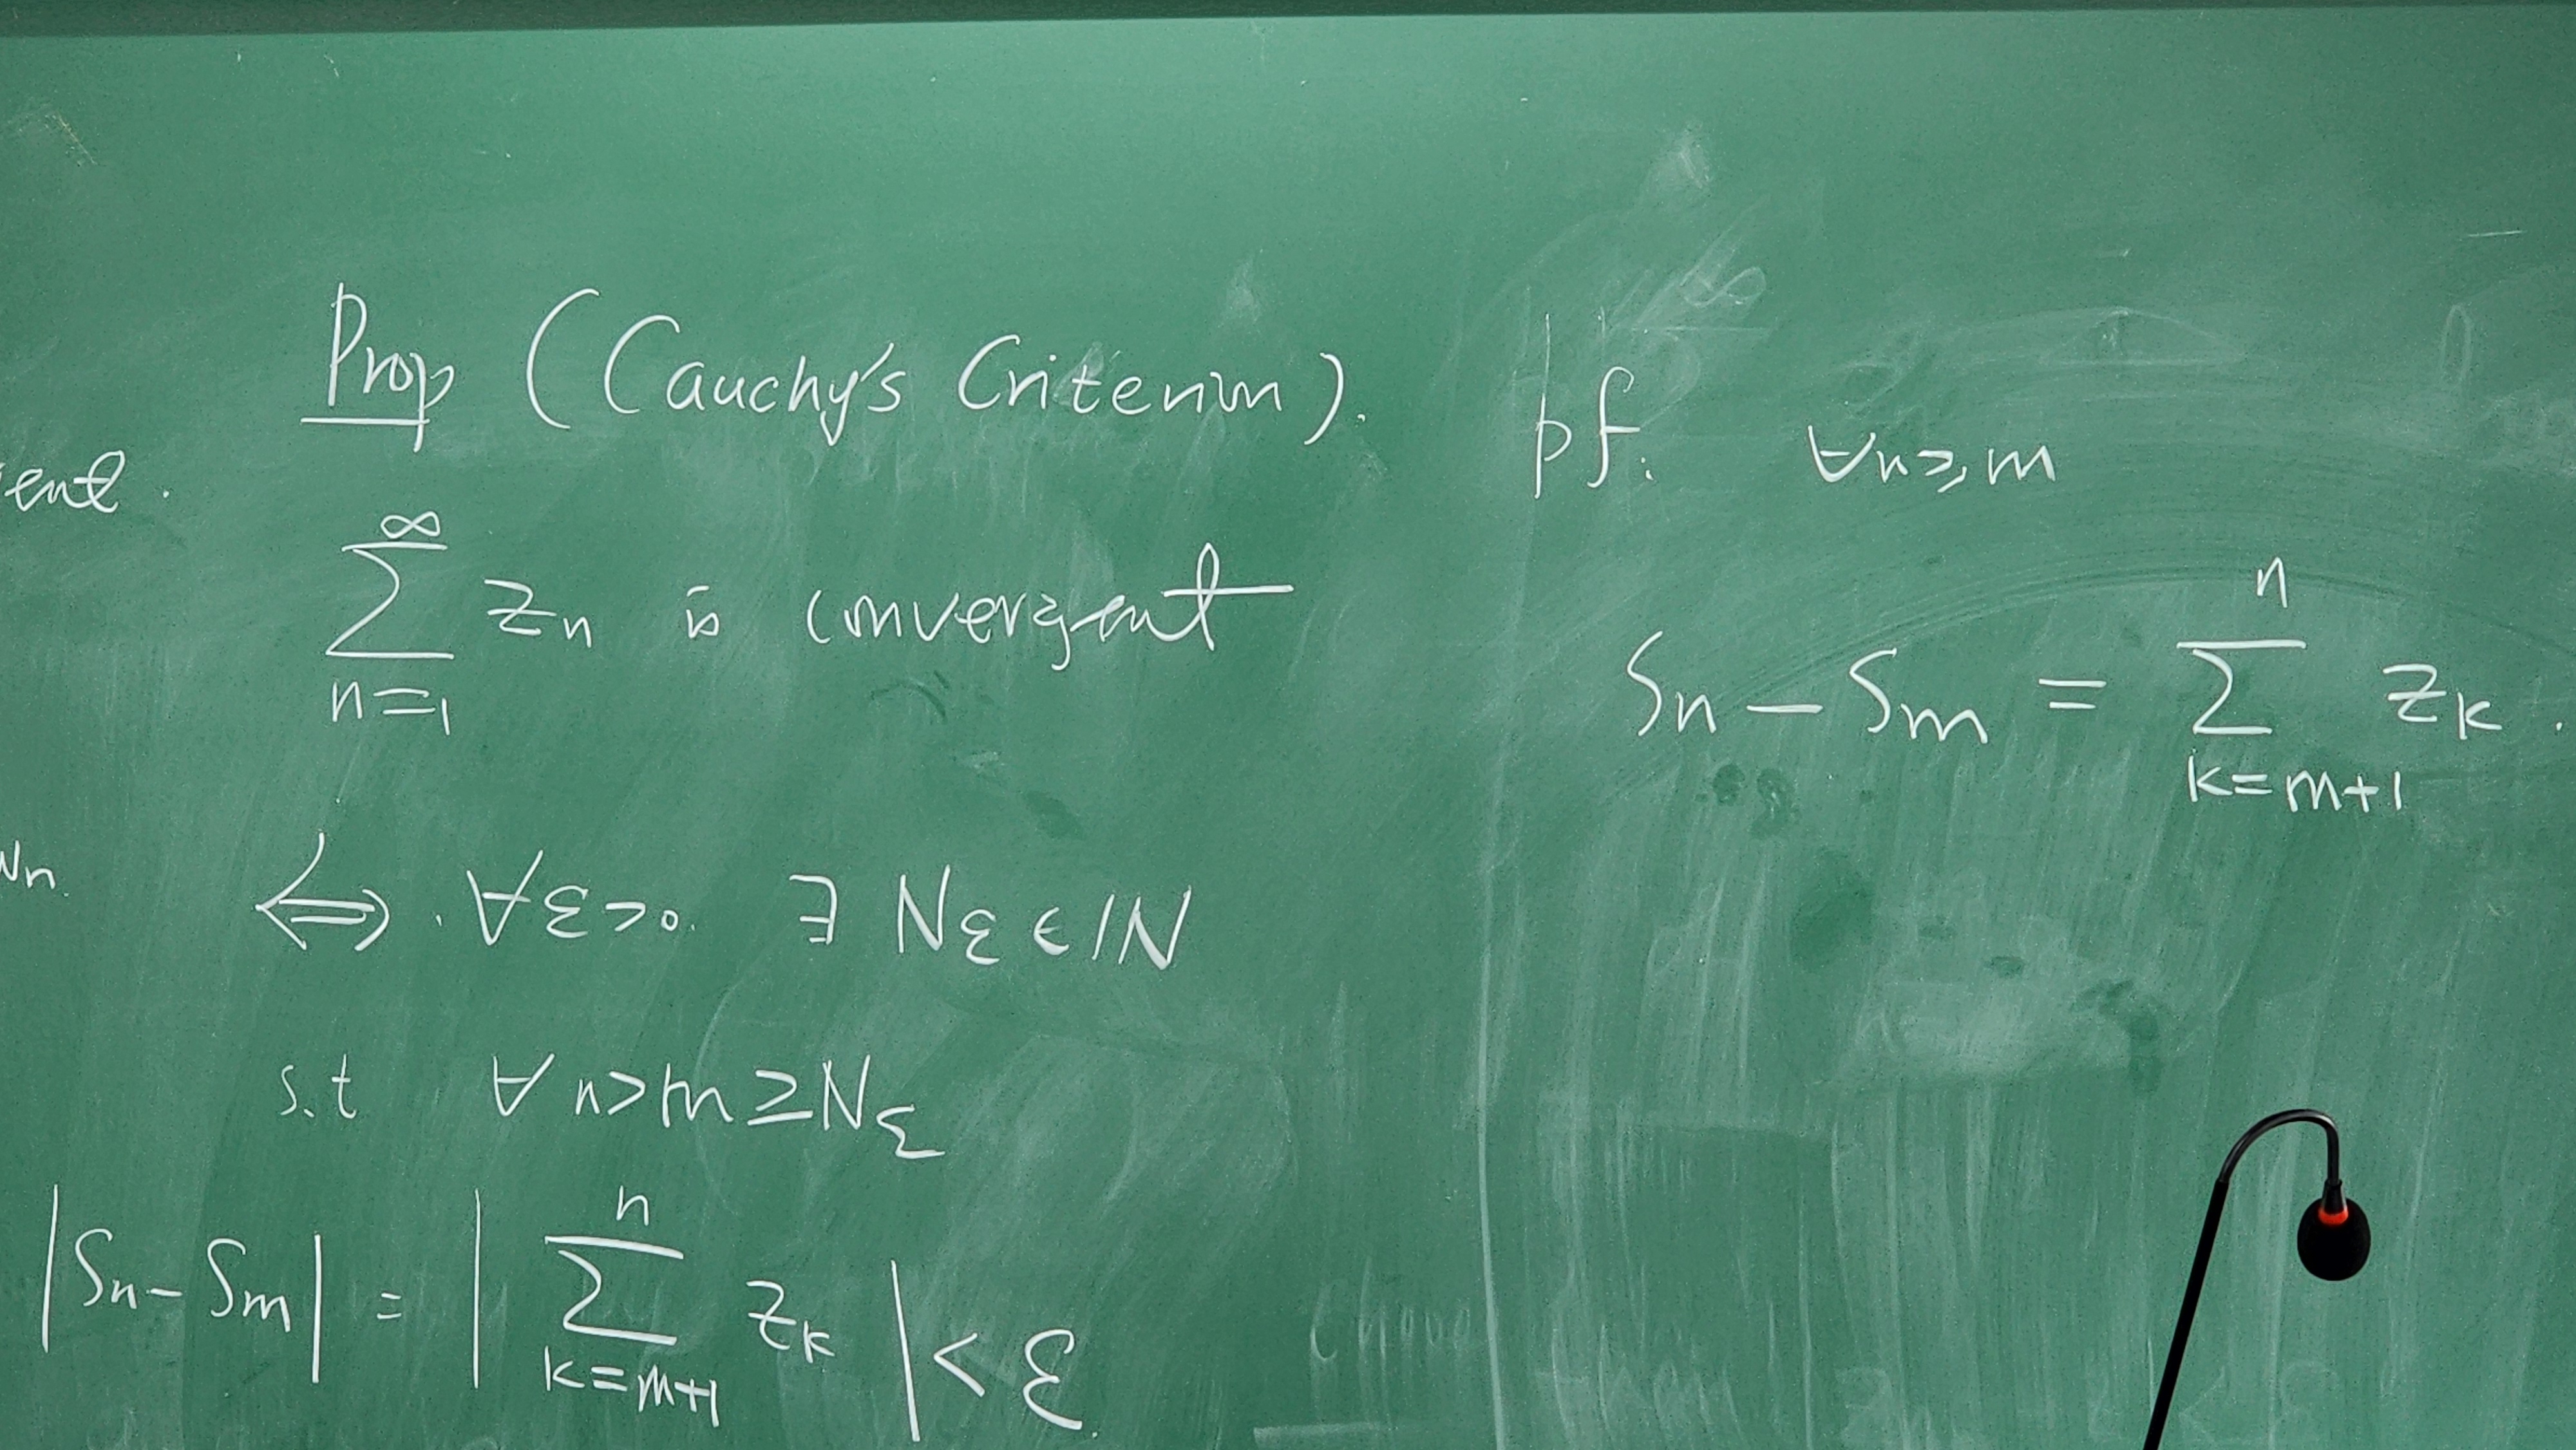 Prop (Cauchy's Criterion).
ent.
∑_{n=1}^{∞} z_n is convergent
⟺ . ∀ε>0. ∃ N_ε ∈ ℕ
s.t ∀ n>m ≥ N_ε
|S_n - S_m| = | ∑_{k=m+1}^{n} z_k | < ε.
pf: ∀n⩾m
S_n - S_m = ∑_{k=m+1}^{n} z_k.